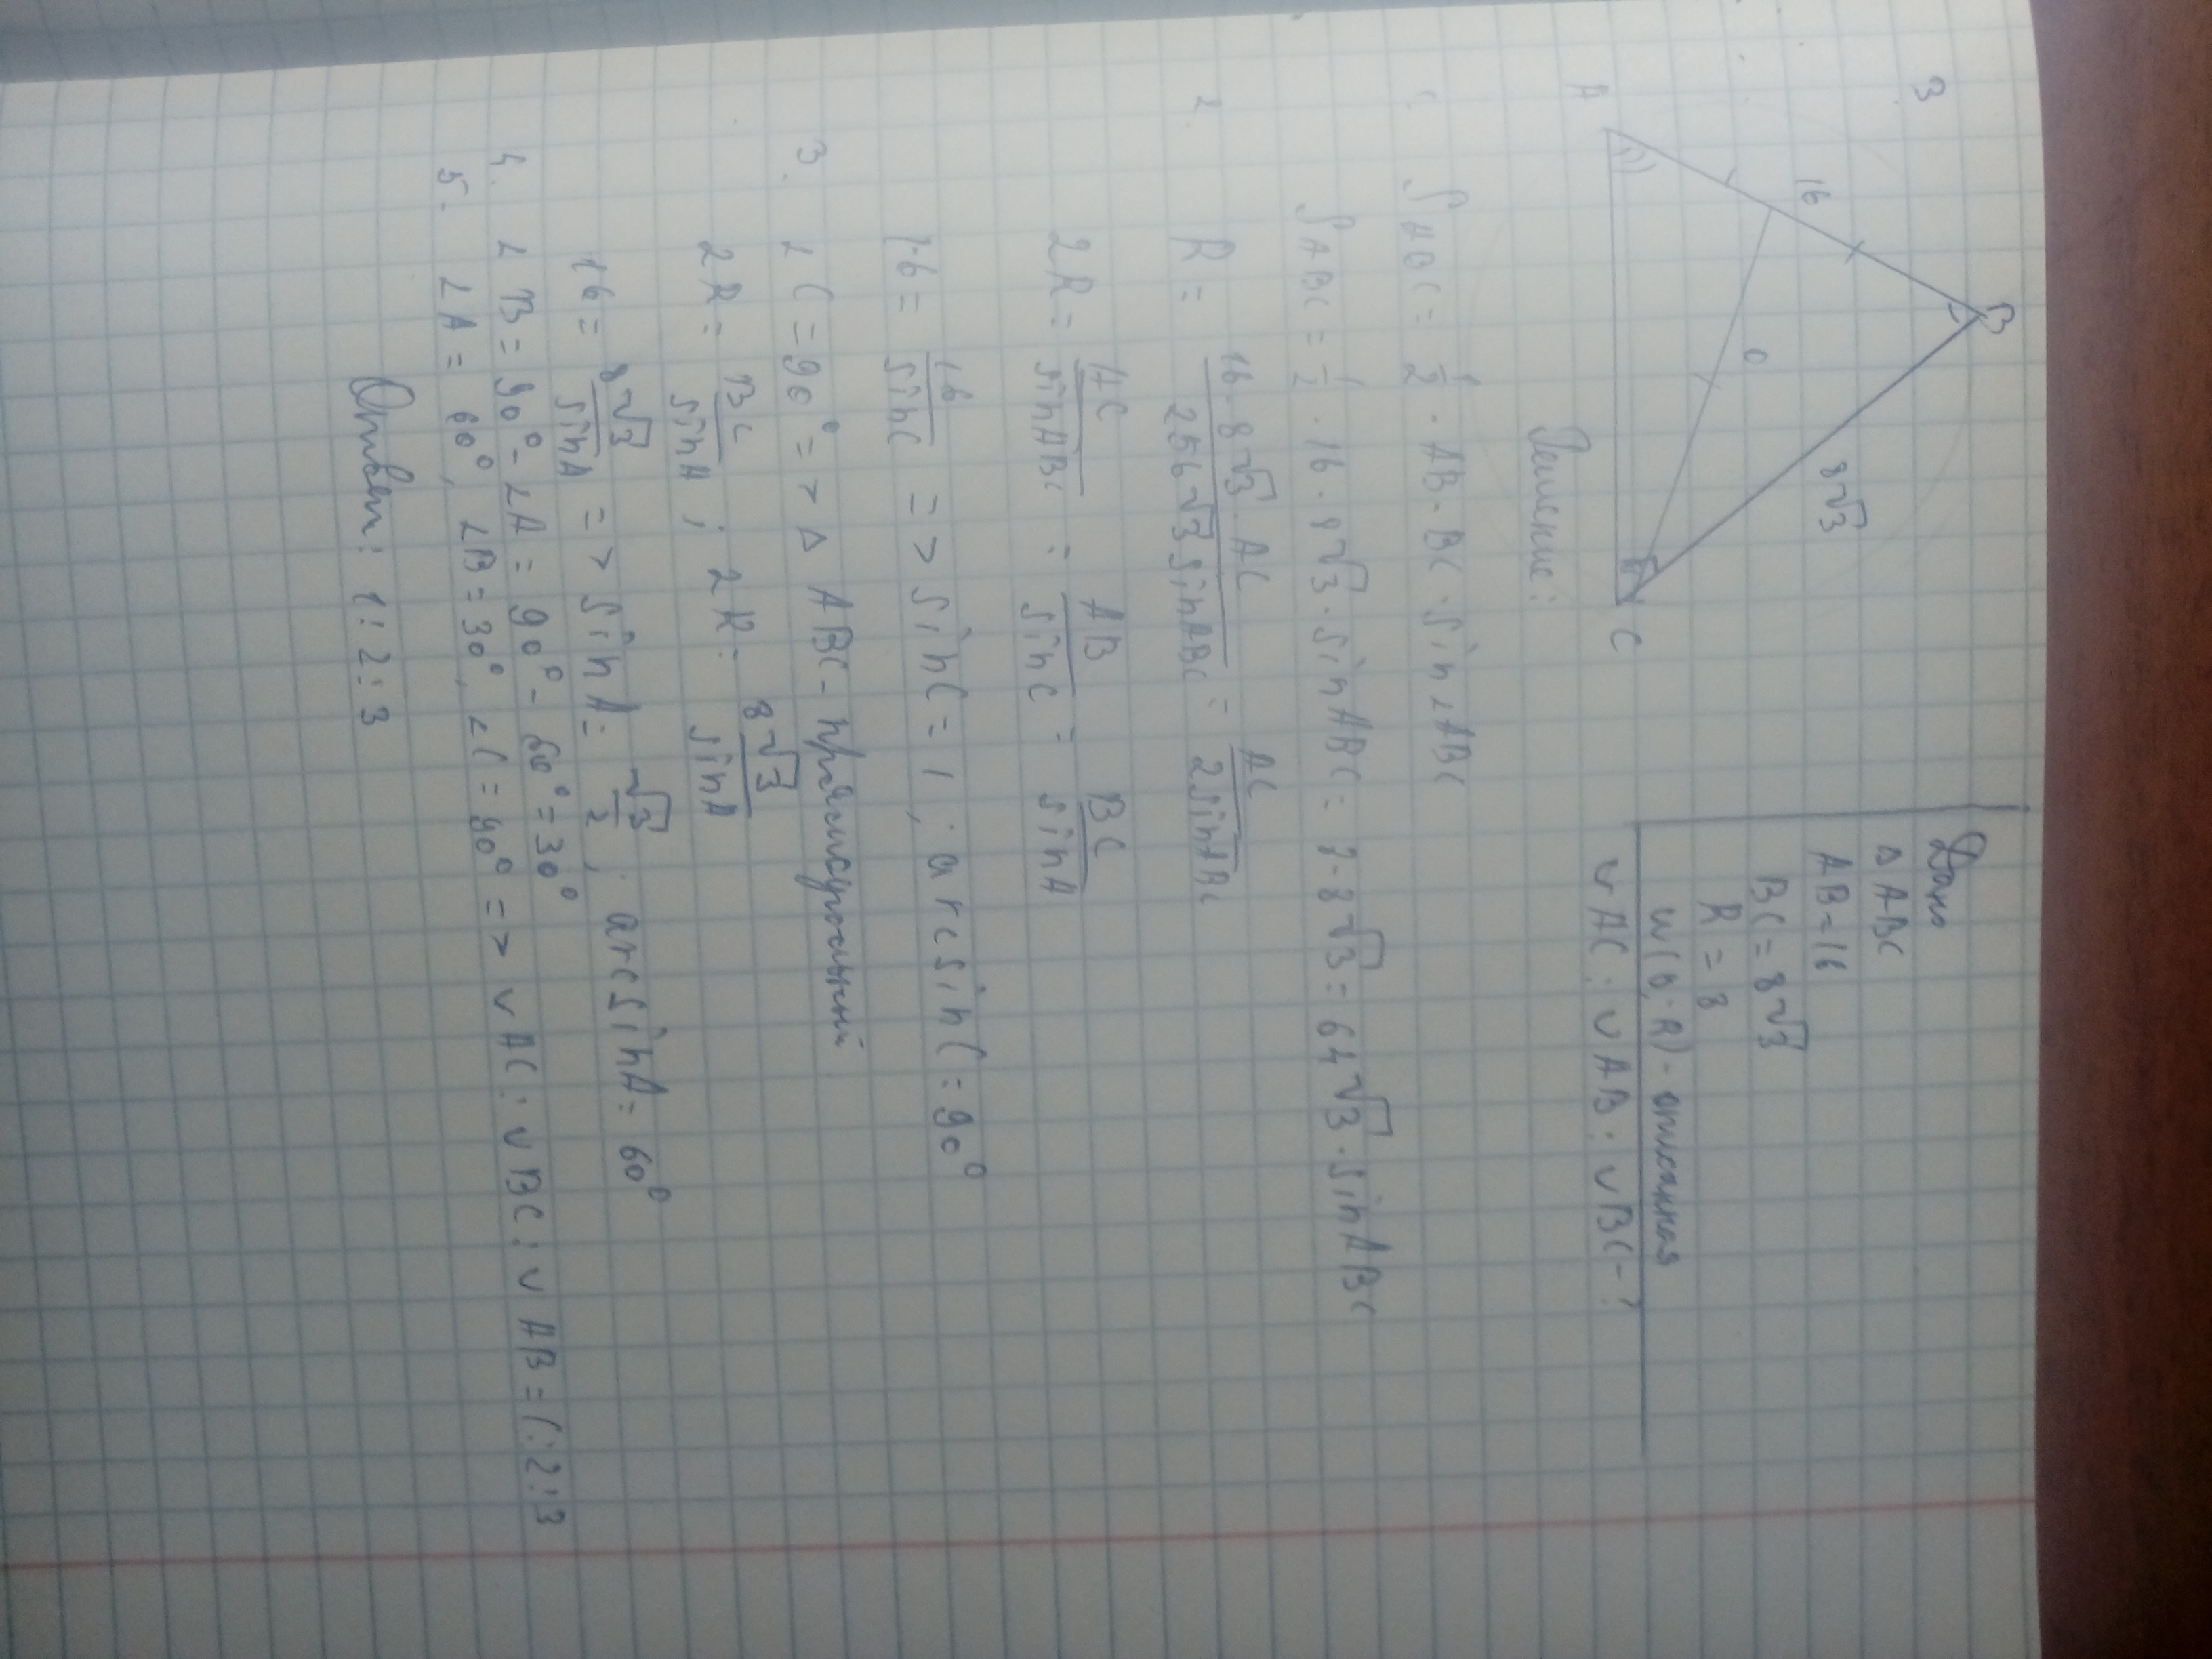 3
B
16
8√3
O
A
C
Дано
△ ABC
AB = 16
BC = 8√3
R = 8
W(O; R) - описанная
∪ AC : ∪ AB : ∪ BC - ?
Решение:
1. S ABC = 1/2 · AB · BC · sin ∠ABC
S ABC = 1/2 · 16 · 8√3 · sin ABC = 8 · 8√3 = 64√3 · sin ABC
2. R = 16 · 8√3 · AC / 256√3 sin ABC = AC / 2 sin ABC
2R = AC / sin ABC = AB / sin C = BC / sin A
16 = 16 / sin C => sin C = 1 ; arcsin C = 90°
3. ∠ C = 90° => △ ABC - прямоугольный
2R = BC / sin A ; 2R = 8√3 / sin A
16 = 8√3 / sin A => sin A = √3 / 2 ; arcsin A = 60°
4. ∠ B = 90° - ∠A = 90° - 60° = 30°
5. ∠A = 60°, ∠B = 30°, ∠C = 90° => ∪ AC : ∪ BC : ∪ AB = 1 : 2 : 3
Ответ: 1 : 2 : 3